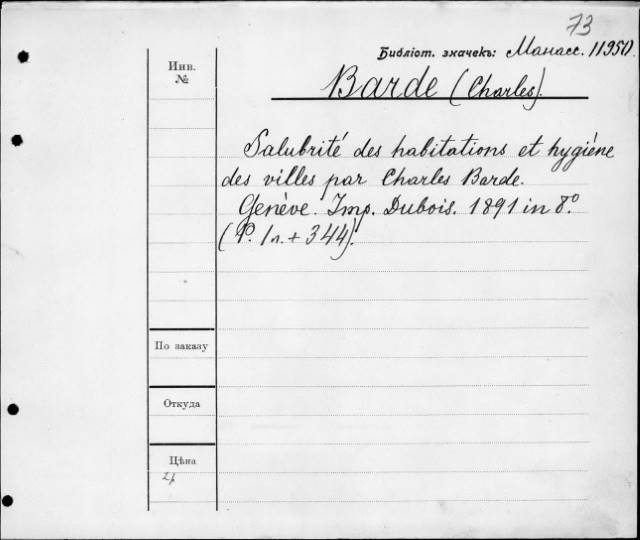 73
Библіот. значекъ: Манасс. 11950.
Инв.
№
Barde (Charles).
Salubrité des habitations et hygiène
des villes par Charles Barde.
Genève. Imp. Dubois. 1891 in 8º.
(P. 1л. + 344).
По заказу
Откуда
Цѣна